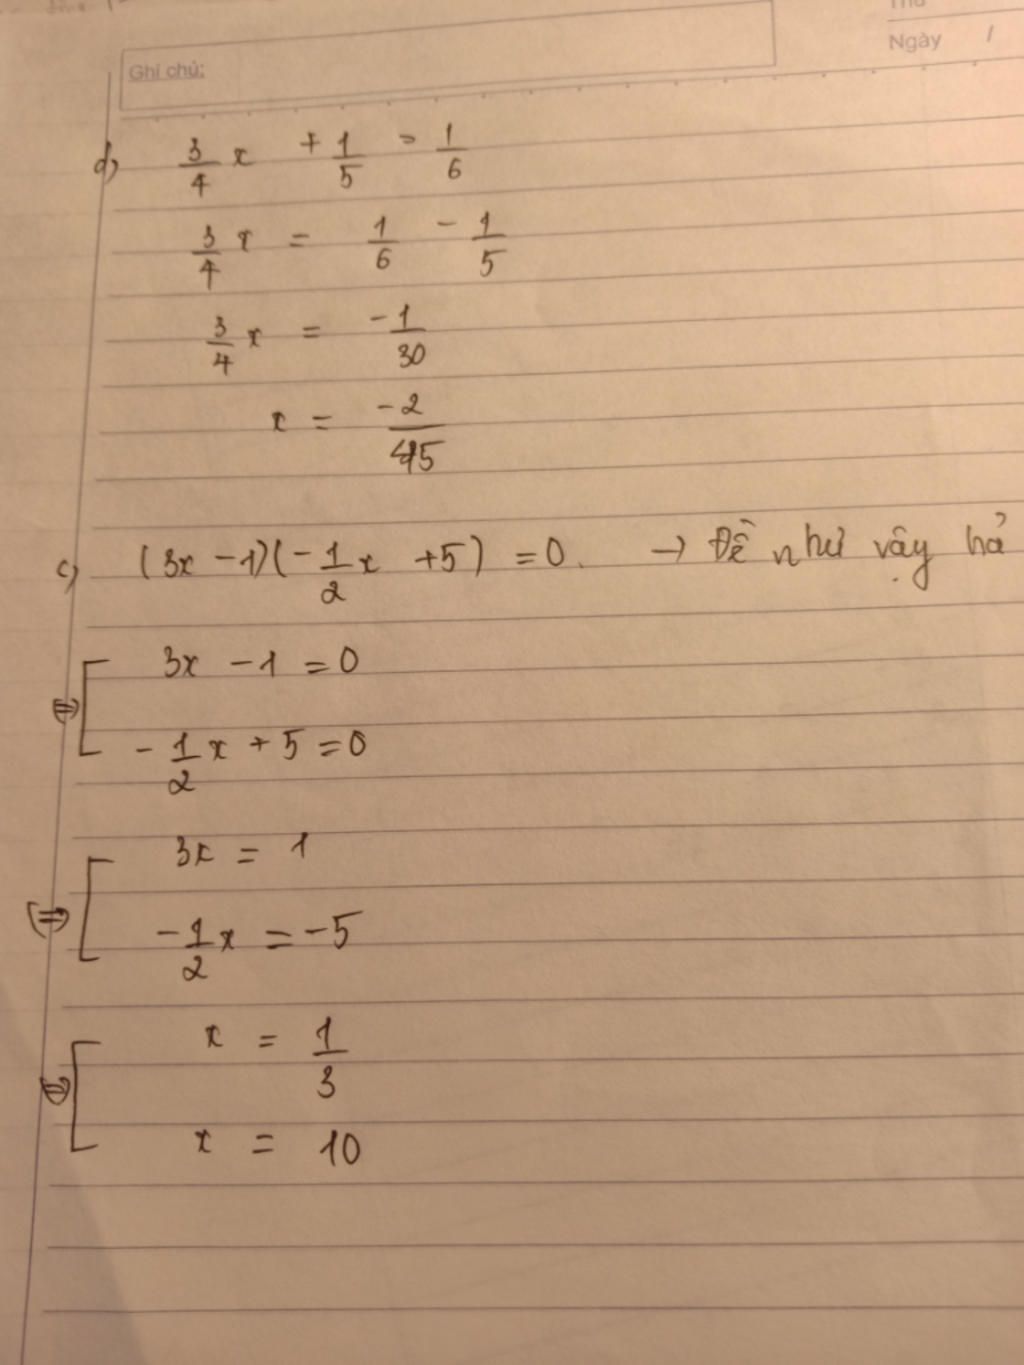 Thứ
Ngày /
Ghi chú:
d) 3/4 x + 1/5 = 1/6
3/4 x = 1/6 - 1/5
3/4 x = -1/30
x = -2/45
c) (3x - 1)(-1/2 x + 5) = 0. → Đề như vậy hả
⇔ [ 3x - 1 = 0
-1/2 x + 5 = 0
⇔ [ 3x = 1
-1/2 x = -5
⇔ [ x = 1/3
x = 10